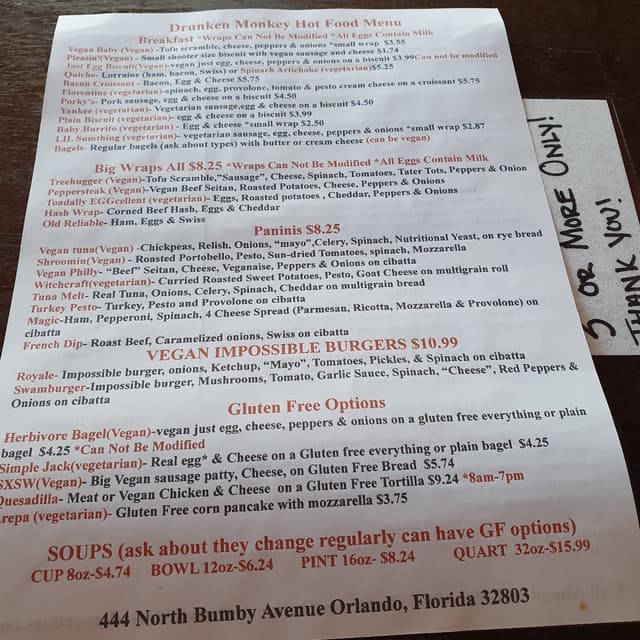 Drunken Monkey Hot Food Menu
Breakfast *Wraps Can Not Be Modified *All Eggs Contain Milk
Vegan Baby (Vegan) -Tofu scramble, cheese, peppers & onions *small wrap $3.55
Pleasin'(Vegan) - Small shooter size biscuit with vegan sausage and cheese $1.74
Just Egg Biscuit(Vegan)-vegan just egg, cheese, peppers & onions on a biscuit $3.99Can not be modified
Quiche- Lorraine (ham, bacon, Swiss) or Spinach Artichoke (vegetarian)$5.25
Bacon Croissant - Bacon, Egg & Cheese $5.75
Florentine (vegetarian)-spinach, egg, provolone, tomato & pesto cream cheese on a croissant $5.75
Porky's- Pork sausage, egg & cheese on a biscuit $4.50
Yankee (vegetarian)- Vegetarian sausage,egg & cheese on a biscuit $4.50
Plain Biscuit (vegetarian)- egg & cheese on a biscuit $3.99
Baby Burrito (vegetarian) - Egg & cheese *small wrap $2.50
LIL Sumthing (vegetarian)- vegetarian sausage, egg, cheese, peppers & onions *small wrap $2.87
Bagels- Regular bagels (ask about types) with butter or cream cheese (can be vegan)
Big Wraps All $8.25 *Wraps Can Not Be Modified *All Eggs Contain Milk
Treehugger (Vegan)-Tofu Scramble,"Sausage", Cheese, Spinach, Tomatoes, Tater Tots, Peppers & Onion
Peppersteak (Vegan)-Vegan Beef Seitan, Roasted Potatoes, Cheese, Peppers & Onions
Toadally EGGcellent (vegetarian)- Eggs, Roasted potatoes , Cheddar, Peppers & Onions
Hash Wrap- Corned Beef Hash, Eggs & Cheddar
Old Reliable- Ham, Eggs & Swiss
Paninis $8.25
Vegan tuna(Vegan) -Chickpeas, Relish, Onions, "mayo",Celery, Spinach, Nutritional Yeast, on rye bread
Shroomin(Vegan) - Roasted Portobello, Pesto, Sun-dried Tomatoes, spinach, Mozzarella
Vegan Philly- "Beef" Seitan, Cheese, Veganaise, Peppers & Onions on cibatta
Witchcraft(vegetarian)- Curried Roasted Sweet Potatoes, Pesto, Goat Cheese on multigrain roll
Tuna Melt- Real Tuna, Onions, Celery, Spinach, Cheddar on multigrain bread
Turkey Pesto- Turkey, Pesto and Provolone on cibatta
Magic-Ham, Pepperoni, Spinach, 4 Cheese Spread (Parmesan, Ricotta, Mozzarella & Provolone) on
cibatta
French Dip- Roast Beef, Caramelized onions, Swiss on cibatta
VEGAN IMPOSSIBLE BURGERS $10.99
Royale- Impossible burger, onions, Ketchup, "Mayo", Tomatoes, Pickles, & Spinach on cibatta
Swamburger-Impossible burger, Mushrooms, Tomato, Garlic Sauce, Spinach, "Cheese", Red Peppers &
Onions on cibatta
Gluten Free Options
Herbivore Bagel(Vegan)-vegan just egg, cheese, peppers & onions on a gluten free everything or plain
bagel $4.25 *Can Not Be Modified
Simple Jack(vegetarian)- Real egg* & Cheese on a Gluten free everything or plain bagel $4.25
SXSW(Vegan)- Big Vegan sausage patty, Cheese, on Gluten Free Bread $5.74
Quesadilla- Meat or Vegan Chicken & Cheese on a Gluten Free Tortilla $9.24 *8am-7pm
repa (vegetarian)- Gluten Free corn pancake with mozzarella $3.75
SOUPS (ask about they change regularly can have GF options)
CUP 8oz-$4.74 BOWL 12oz-$6.24 PINT 16oz- $8.24 QUART 32oz-$15.99
444 North Bumby Avenue Orlando, Florida 32803
5 OR MORE ONLY!
THANK YOU!